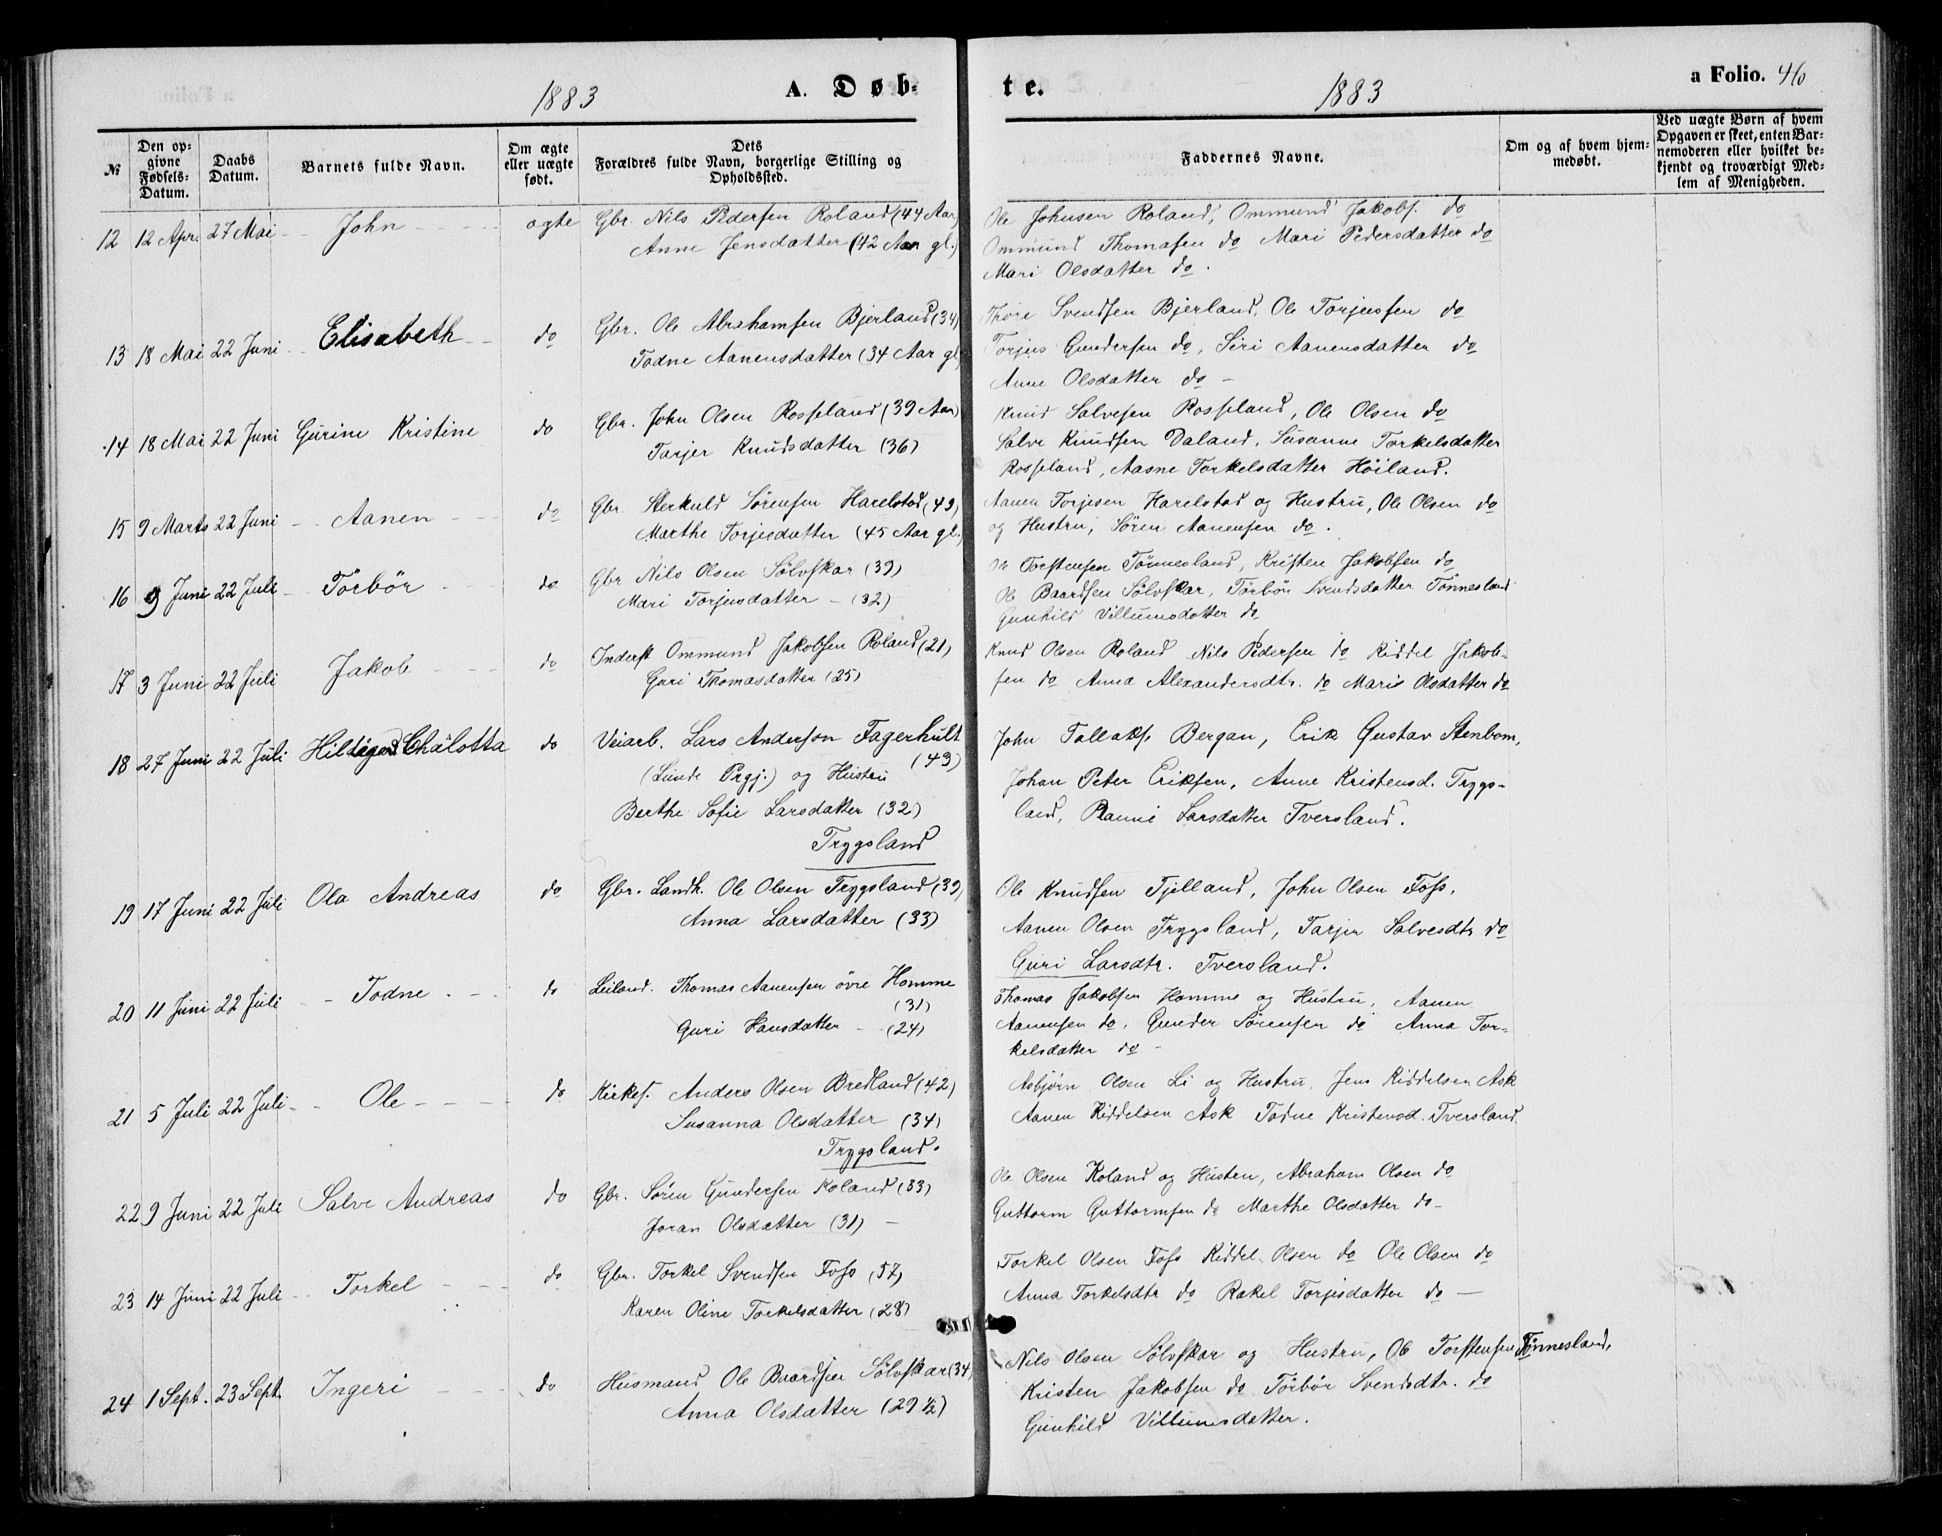 1883
A. Døb-
te.
1883
a Folio. 46
№
Den op-
givne
Fødsels-
Datum.
Daabs
Datum.
Barnets fulde Navn.
Om ægte
eller uægte
født.
Dets
Forældres fulde Navn, borgerlige Stilling og
Opholdssted.
Faddernes Navne.
Om og af hvem hjem-
medøbt.
Ved uægte Børn af hvem
Opgaven er skeet, enten Bar-
nemoderen eller hvilket be-
kjendt og troværdigt Med-
lem af Menigheden.
12 12 Apr. 27 Mai John ægte Gbr. Nils Pedersen Roland (44 Aar)
Anne Jensdatter (42 Aar gl.)
Ole Johnsen Roland, Ommund Jakobs. do
Ommund Thomasen do Mari Pedersdatter do
Mari Olsdatter do.
13 18 Mai 22 Juni Elisabeth do Gbr. Ole Abrahamsen Bjerland (34)
Todne Aanensdatter (34 Aar gl.
Thore Svendsen Bjerland, Ole Torjussen do
Torjus Gundersen do, Siri Aanensdatter do
Anne Olsdatter do –
14 18 Mai 22 Juni Gurine Kristine do Gbr. John Olsen Rosseland (39 Aar)
Tarjer Knudsdatter (36)
Knud Salvesen Rosseland, Ole Olsen do
Salve Knudsen Daland, Susanne Torkelsdatter
Rosseland, Aasne Torkelsdatter Höiland.
15 9 Marts 22 Juni Aanen do Gbr. Sterkuld Sørensen Harelstad (49)
Marthe Torjesdatter (45 Aar gl.
Aanen Torjesen Harelstad og Hustru, Ole Olsen do
og Hustru, Sören Aanensen do.
16 9 Juni 22 Juli Törbör do Gbr Nils Olsen Sölvskar (39)
Mari Torjusdatter – (32)
Ole Torstensen Tönnesland, Kristen Jakobsen do
Ole Baardsen Sölvskar, Törbör Svendsdatter Tönnesland
Gunhild Villumsdatter do
17 3 Juni 22 Juli Jakob do Inderst Ommund Jakobsen Roland (21)
Guri Thomasdatter (25)
Knud Olsen Roland Nils Pedersen do Kiddel Jakob-
sen do Anna Alexandersdtr. do Maris Olsdatter do
18 27 Juni 22 Juli Hiltigard Chalotta do Veiarb. Lars Anderson Fagerhult
(Lunde Prgj.) og Hustru (43)
Berthe Sofie Larsdatter (32)
Trygsland
John Tallaks. Bergan, Erik Gustav Stenbom,
Johan Peter Eriksen, Anne Kristensd. Trygs-
land, Ranni Larsdatter Tversland.
19 17 Juni 22 Juli Ola Andreas do Gbr. Landh. Ole Olsen Trygsland (39)
Anna Larsdatter (33)
Ole Knudsen Tjelland, John Olsen Foss,
Aanen Olsen Trygsland, Tarjer Salvesdtr do
Guri Larsdtr. Tversland.
20 11 Juni 22 Juli Todne do Leiland. Thomas Aanensen övre Homme
(31)
Guri Hansdatter – (24)
Thomas Jakobsen Homme og Hustru, Aanen
Aanensen do, Gunder Sörensen do Anna Tor-
kelsdatter do –
21 5 Juli 22 Juli Ole do Kirkes. Anders Olsen Bredland (42)
Susanna Olsdatter (34)
Trygsland.
Asbjörn Olsen Li og Hustru, Jens Kiddelsen Ask
Aanen Kiddelsen Ask Todne Kristensd. Tversland.
22 9 Juni 22 Juli Salve Andreas do Gbr. Sören Gundersen Roland (33)
Joran Olsdatter (31) –
Ole Olsen Roland og Hustru, Abraham Olsen do
Guttorm Guttormsen do Marthe Olsdatter do –
23 14 Juni 22 Juli Torkel do Gbr. Torkel Svendsen Foss (57)
Karen Oline Torkelsdatter (28)
Torkel Olsen Foss Kiddel Olsen do Ole Olsen do
Anna Torkelsdtr do Rakel Torjusdatter do –
24 1 Sept. 23 Sept. Ingeri do Husmand Ole Baardsen Sölvskar (34)
Anna Olsdatter (29 ½)
Nils Olsen Sölvskar og Hustru, Ole Torstensen Tönnesland,
Kristen Jakobsen do Törbör Svendsdtr. do
Gunhild Villumsdatter.